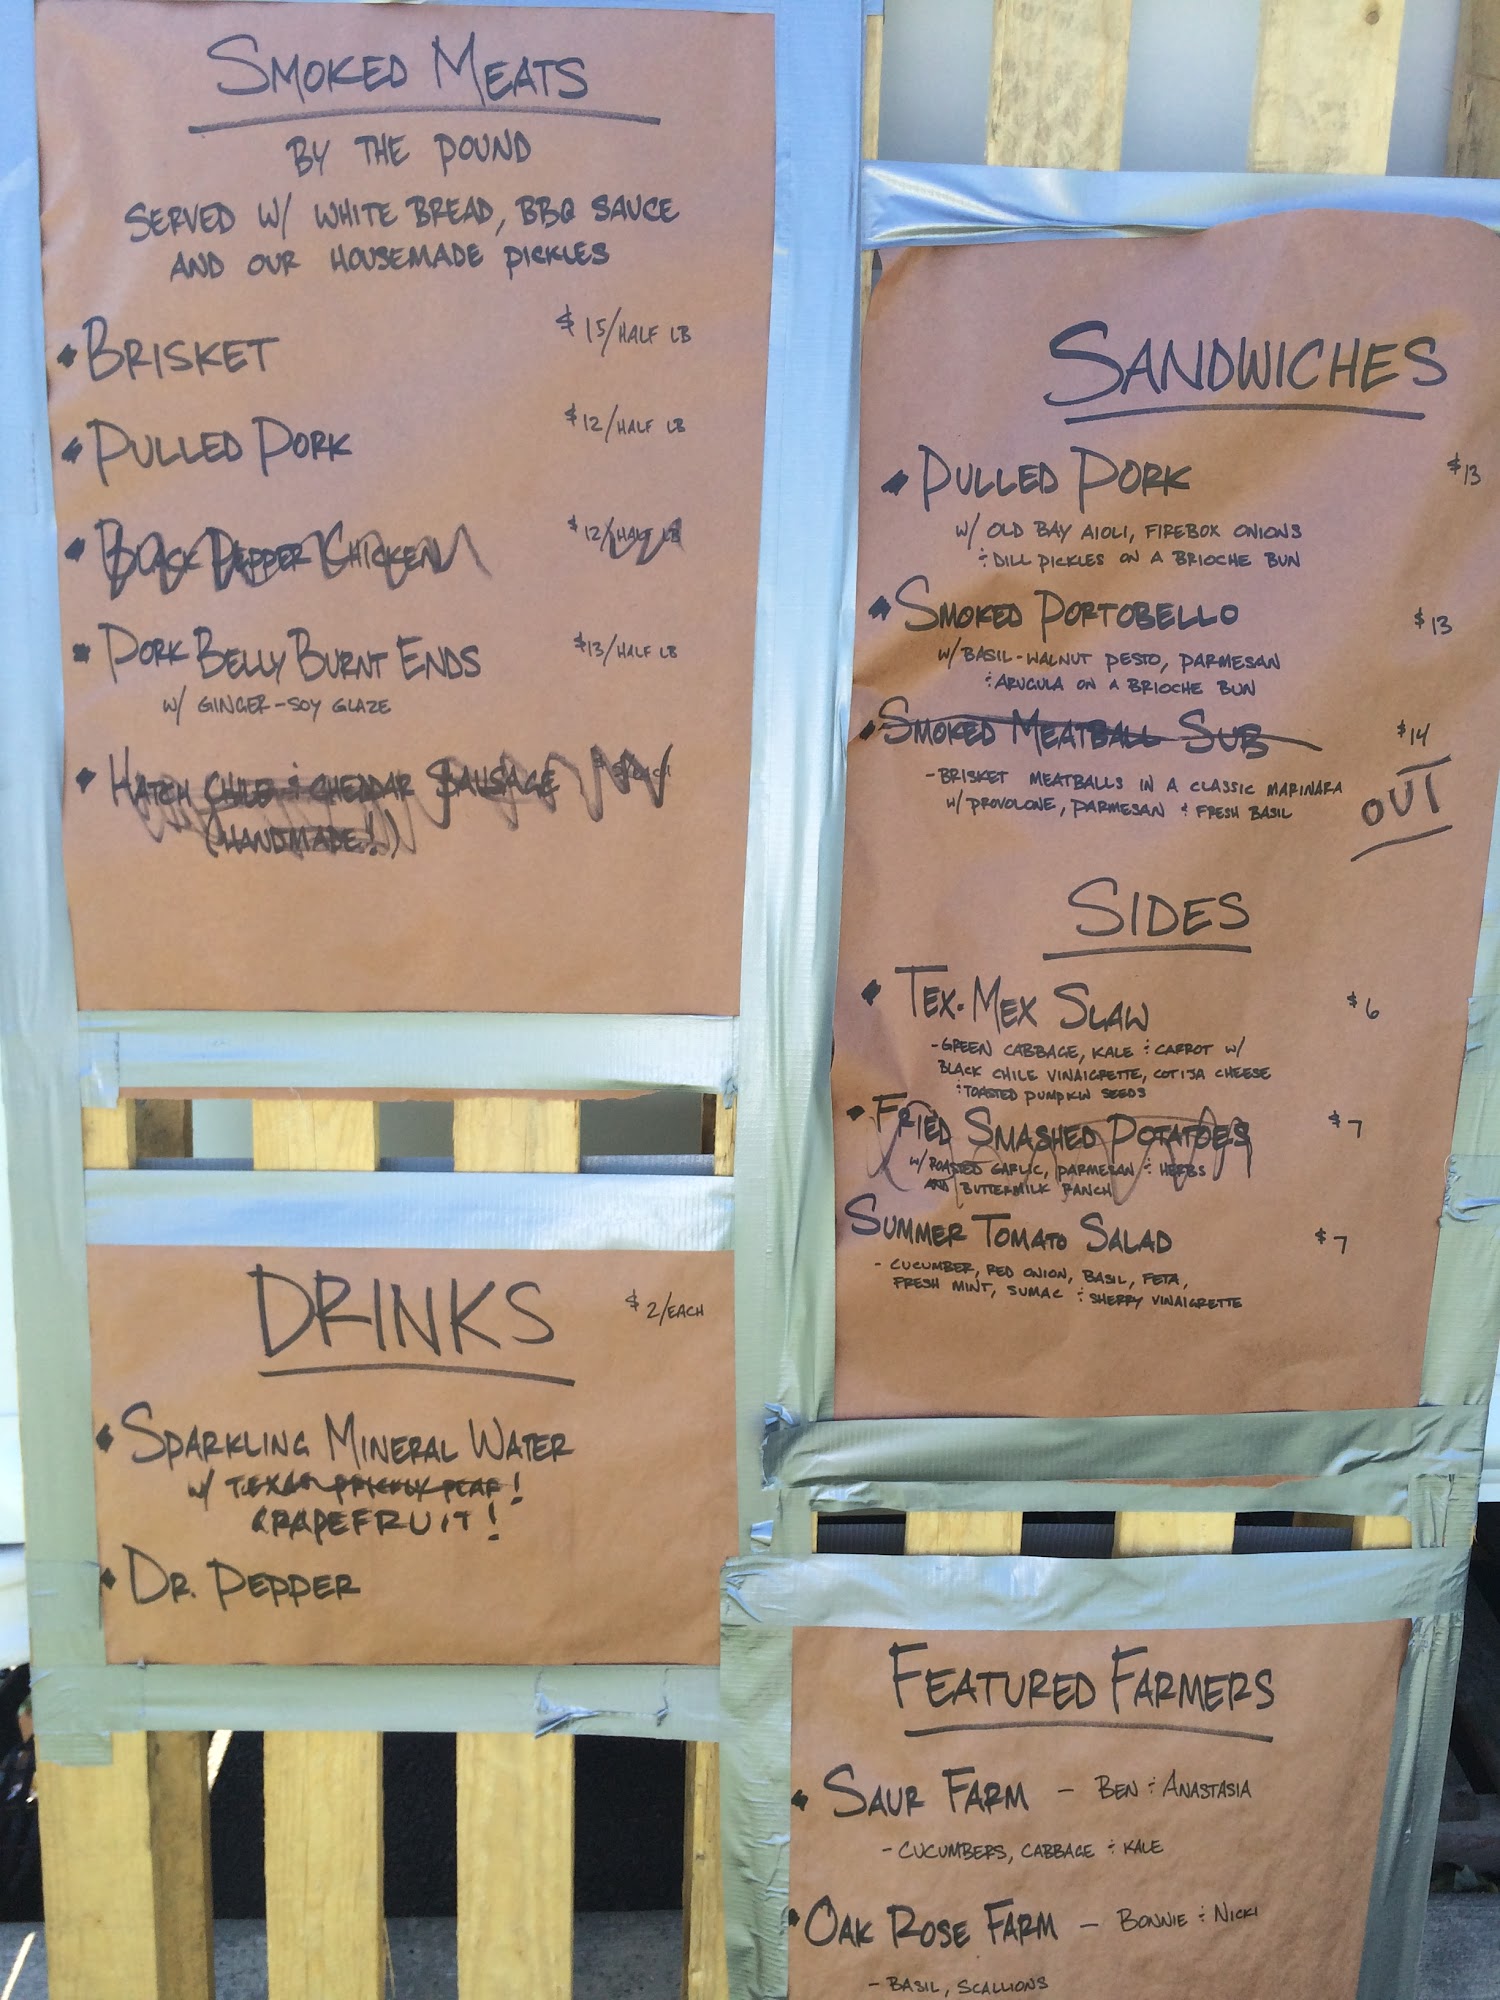 SMOKED MEATS
BY THE POUND
SERVED W/ WHITE BREAD, BBQ SAUCE
AND OUR HOUSEMADE PICKLES
BRISKET $15/HALF LB
PULLED PORK $12/HALF LB
BLACK PEPPER CHICKEN $12/HALF LB
PORK BELLY BURNT ENDS $13/HALF LB
W/ GINGER-SOY GLAZE
HATCH CHILE & CHEDDAR SAUSAGE
(HANDMADE!)
DRINKS $2/EACH
SPARKLING MINERAL WATER
W/ TEXAS PRICKLY PEAR!
GRAPEFRUIT!
DR. PEPPER
SANDWICHES
PULLED PORK $13
W/ OLD BAY AIOLI, FIREBOX ONIONS
& DILL PICKLES ON A BRIOCHE BUN
SMOKED PORTOBELLO $13
W/ BASIL-WALNUT PESTO, PARMESAN
& ARUGULA ON A BRIOCHE BUN
SMOKED MEATBALL SUB $14
-BRISKET MEATBALLS IN A CLASSIC MARINARA
W/ PROVOLONE, PARMESAN & FRESH BASIL
OUT
SIDES
TEX-MEX SLAW $6
-GREEN CABBAGE, KALE & CARROT W/
BLACK CHILE VINAIGRETTE, COTIJA CHEESE
& TOASTED PUMPKIN SEEDS
FRIED SMASHED POTATOES $7
W/ ROASTED GARLIC, PARMESAN & HERBS
AND BUTTERMILK RANCH
SUMMER TOMATO SALAD $7
- CUCUMBER, RED ONION, BASIL, FETA,
FRESH MINT, SUMAC & SHERRY VINAIGRETTE
FEATURED FARMERS
SAUR FARM - BEN & ANASTASIA
- CUCUMBERS, CABBAGE & KALE
OAK ROSE FARM - BONNIE & NICKI
- BASIL, SCALLIONS